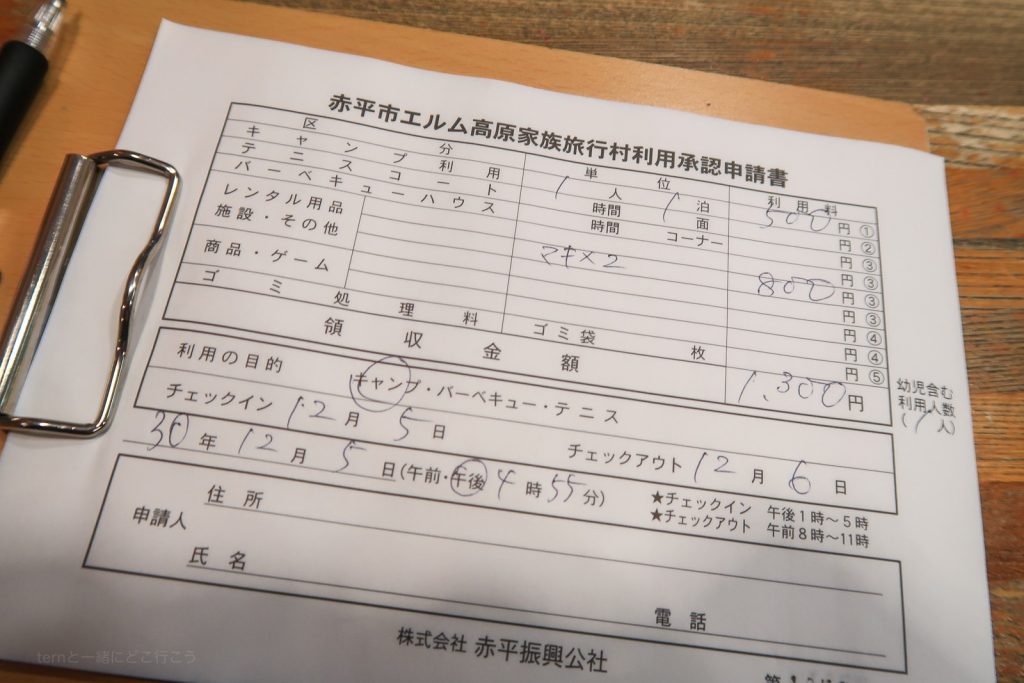 赤平市エルム高原家族旅行村利用承認申請書
区分 単位 利用料
キャンプ利用 1人 1泊 500円①
テニスコート 時間 面 円②
バーベキューハウス 時間 コーナー 円③
レンタル用品 円③
施設・その他 マキ×2 800円③
円③
商品・ゲーム 円④
円④
ゴミ処理料 ゴミ袋 枚 円⑤
領収金額 1,300円
幼児含む
利用人数
(1人)
利用の目的 キャンプ・バーベキュー・テニス
チェックイン 12月5日 チェックアウト 12月6日
30年12月5日(午前・午後4時55分)
★チェックイン 午後1時～5時
★チェックアウト 午前8時～11時
申請人
住所
氏名
電話
株式会社 赤平振興公社
ternと一緒にどこ行こう